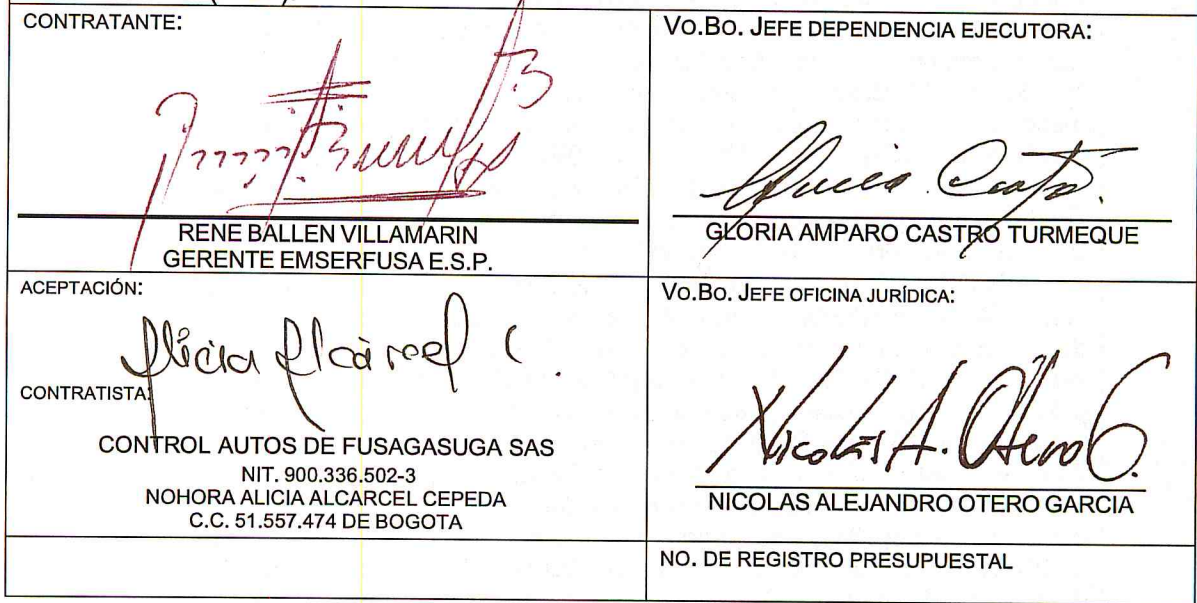 CONTRATANTE:
RENE BALLEN VILLAMARIN
GERENTE EMSERFUSA E.S.P.
VO.BO. JEFE DEPENDENCIA EJECUTORA:
GLORIA AMPARO CASTRO TURMEQUE
ACEPTACIÓN:
Alicia Alcárcel C.
CONTRATISTA:
CONTROL AUTOS DE FUSAGASUGA SAS
NIT. 900.336.502-3
NOHORA ALICIA ALCARCEL CEPEDA
C.C. 51.557.474 DE BOGOTA
VO.BO. JEFE OFICINA JURÍDICA:
Nicolás A. Otero G.
NICOLAS ALEJANDRO OTERO GARCIA
NO. DE REGISTRO PRESUPUESTAL